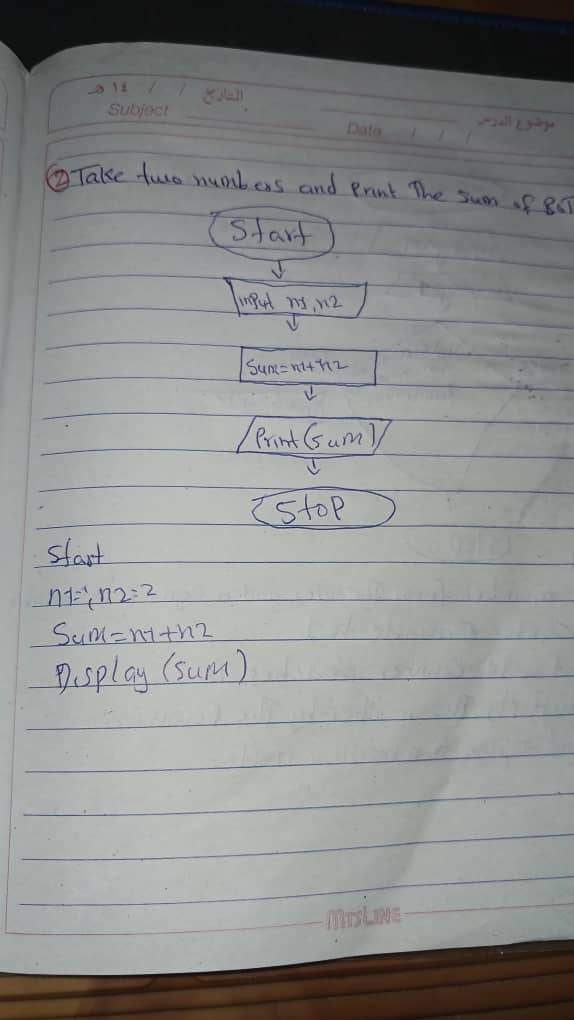 ١٤ / / هـ التاريخ
Subject
موضوع الدرس
Date / / /
② Take two numbers and Print The Sum of Bot
Start
Input n1, n2
Sum=n1+n2
Print (Sum)
Stop
Start
n1=1, n2=2
Sum=n1+n2
Display (Sum)
MTSLINE